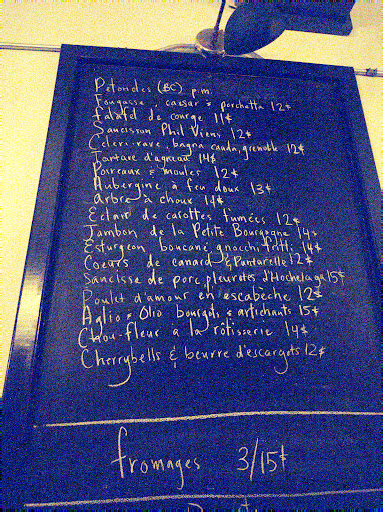 Pétoncles (BC) p.m.
Fougasse, caesar & porchetta 12¢
Falafel de courge 11¢
Saucisson Phil Viens 12¢
Céleri-rave, bagna cauda, grenoble 12¢
Tartare d'agneau 14¢
Poireaux & moules 12¢
Aubergine à feu doux 13¢
Arbre à choux 14¢
Éclair de carottes fumées 12¢
Jambon de la Petite Bourgogne 14¢
Esturgeon boucané gnocchi fritti 14¢
Coeurs de canard & Puntarelle 12¢
Saucisse de porc, pleurotes d'Hochelaga 15¢
Poulet d'amour en escabèche 12¢
Aglio & Olio bourgots & artichauts 15¢
Chou-fleur à la rôtisserie 14¢
Cherrybells & beurre d'escargots 12¢
fromages 3/15¢